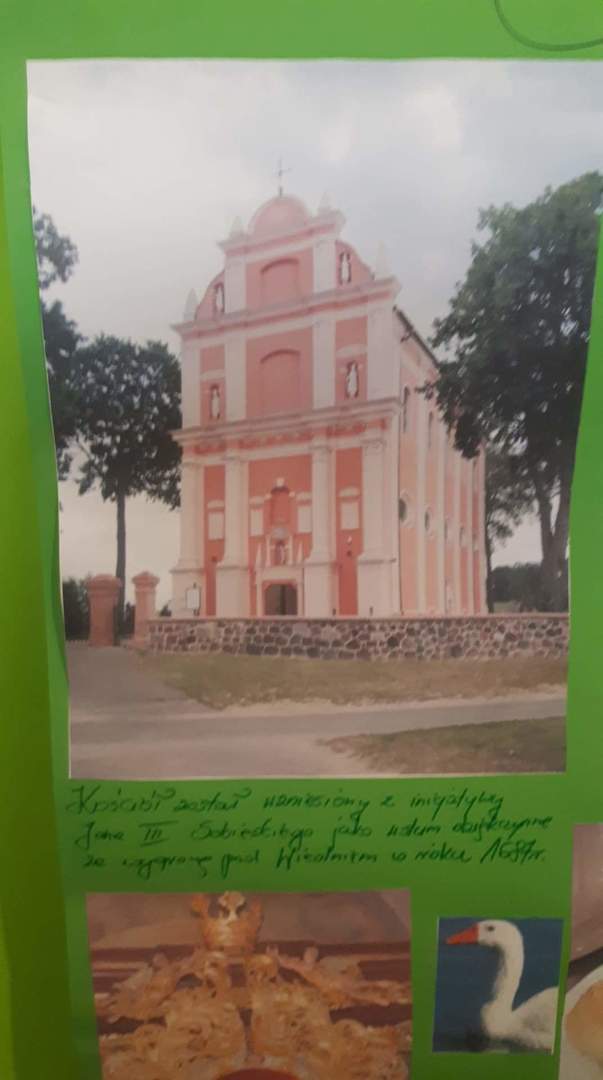 Kościół został wzniesiony z inicjatywy
Jana III Sobieskiego jako wotum dziękczynne
za wyprawę pod Wiedniem w roku